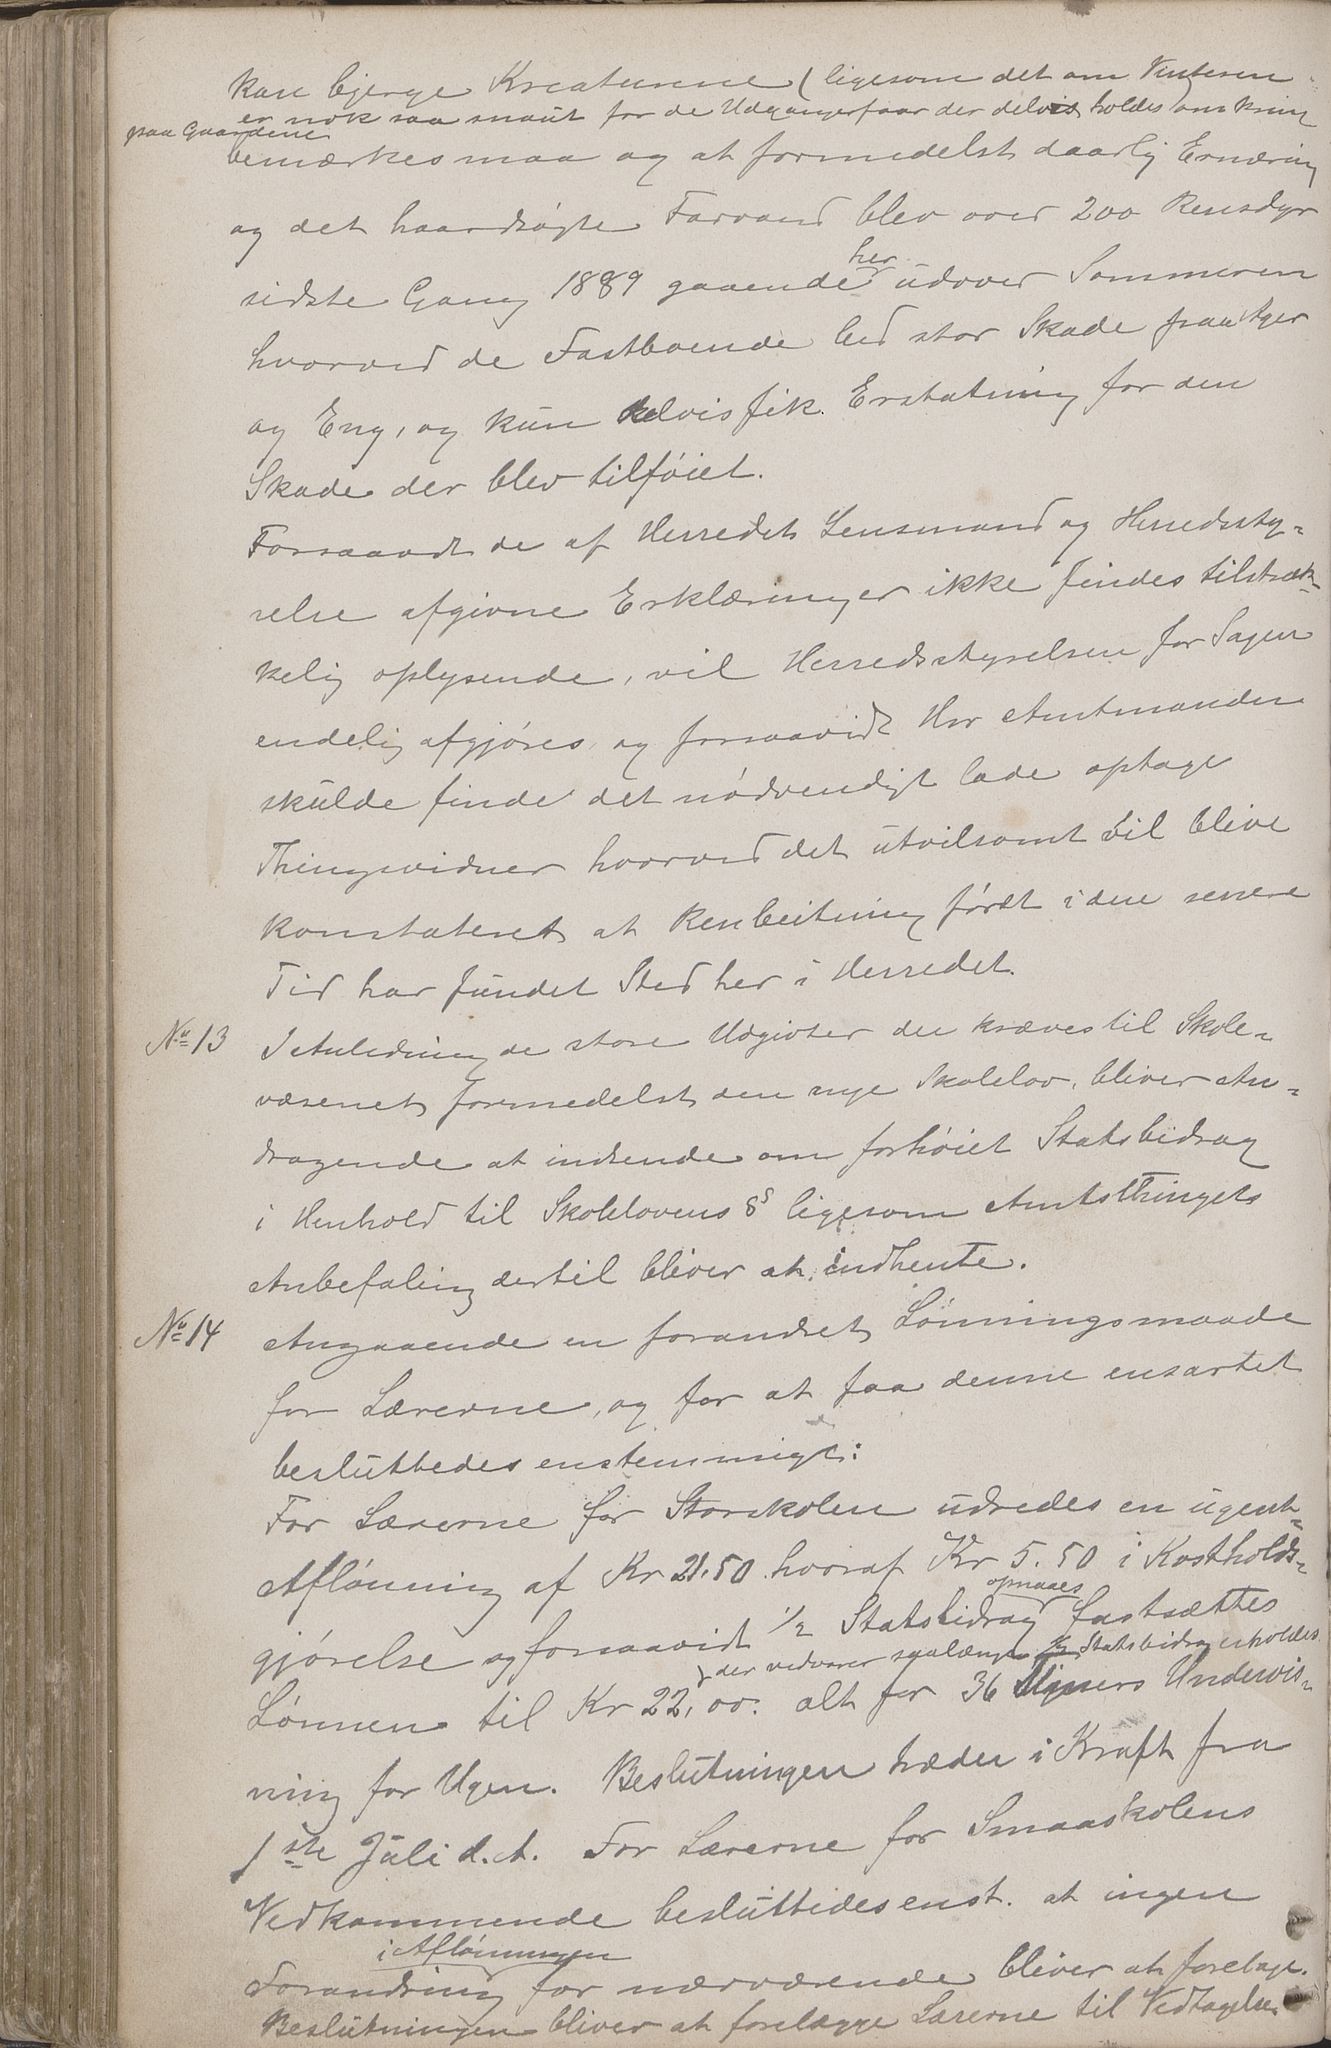 kan bjerge Kreaturene (ligesom det om Vinteren
er nok saa snaut for de Udgangerfaar der delvis holdes) om kring
paa Gaardene
bemærkes maa og at formedelst daarlig Ernæring
og det haardsøgte Farvand blev over 200 Rensdyr
sidste Gang 1889 gaaende her udover Sommeren
hvorved de Fastboende led stor Skade paa Ager
og Eng, og kun delvis fik Erstatning for den
Skade der blev tilføiet.
Forsaavidt de af Herredets Lensmand og Herredssty-
relse afgivne Erklæringer ikke findes tilstræk-
kelig oplysende, vil Herredsstyrelsen før Sagen
endelig afgjøres, og forsaavidt Hr Amtmanden
skulde finde det nødvendigt lade optage
Thingsvidner hvorved det utvilsomt vil blive
konstateret at Renbeitning først i den senere
Tid har fundet Sted her i Herredet.
No 13 I Anledning de store Udgivter der kræves til Skole-
væsenet formedelst den nye Skolelov, bliver An-
dragende at indsende om forhøiet Statsbidrag
i Henhold til Skolelovens § ligesom Amtsthingets
Anbefaling dertil bliver at indhente.
No 14 Angaaende en forandret Lønningsmaade
for Lærerne, og for at faa denne ensartet
besluttedes enstemmigt:
For Lærerne for Storskolen udredes en ugent-
Aflønning af Kr 21.50 hvoraf Kr 5.50 i Kostholds-
gjørelse og forsaavidt 1/2 Statsbidrag opnaaes fastsættes
der vedvarer saalænge 1/2 Statsbidrag erholdes
Lønnen til Kr 22,00. alt for 36 Timers Undervis-
ning for Ugen. Beslutningen træder i Kraft fra
1ste Juli d.A. For Lærerne for Smaaskolens
Vedkommende besluttedes enst. at ingen
Forandring i Aflønningen for nærværende bliver at foretage.
Beslutningen bliver at forelægge Lærerne til Vedtagelse